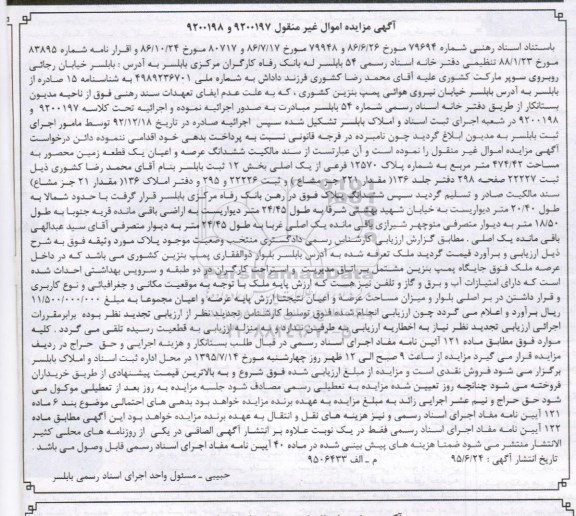 آگهی مزایده اموال غیر منقول ۹۲۰۰۱۹۷ و ۹۲۰۰۱۹۸
باستناد اسناد رهنی شماره ۷۹۶۹۴ مورخ ۸۶/۶/۲۶ و ۷۹۹۴۸ مورخ ۸۶/۷/۱۷ و ۸۰۷۱۷ مورخ ۸۶/۱۰/۲۴ و اقرار نامه شماره ۸۳۸۹۵
مورخ ۸۸/۱/۲۳ تنظیمی دفتر خانه اسناد رسمی ۵۴ بابلسر له بانک رفاه کارگران مرکزی بابلسر به آدرس : بابلسر خیابان رجائی
روبروی سوپر مارکت کشوری علیه آقای محمد رضا کشوری فرزند داداش به شماره ملی ۴۹۸۹۲۳۶۷۰۱ به شناسنامه ۱۵ صادره از
بابلسر به آدرس بابلسر خیابان نیروی هوائی پمپ بنزین کشوری ، که به علت عدم ایفای تعهدات سند رهنی فوق از ناحیه مدیون
بستانکار از طریق دفتر خانه اسناد رسمی شماره ۵۴ بابلسر مبادرت به صدور اجرائیه نموده و اجرائیه تحت کلاسه ۹۲۰۰۱۹۷ و
۹۲۰۰۱۹۸ در شعبه اجرای ثبت اسناد و املاک بابلسر تشکیل شده سپس اجرائیه صادره در تاریخ ۹۲/۱۲/۱۸ توسط مامور اجرای
ثبت بابلسر به مدیون ابلاغ گردید چون نامبرده در فرجه قانونی نسبت به پرداخت بدهی خود اقدامی ننموده دائن درخواست
آگهی مزایده اموال غیر منقول را نموده است و آن عبارتست از سند مالکیت ششدانگ عرصه و اعیان یک قطعه زمین محصور به
مساحت ۴۷۴/۴۲ متر مربع به شماره پلاک ۱۲۵۷۰ فرعی از یک اصلی بخش ۱۲ ثبت بابلسر بنام آقای محمد رضا کشوری ذیل
ثبت ۲۲۲۲۷ صفحه ۲۹۸ دفتر جلد ۱۳۶( مقدار ۲۲۱ جز مشاع) و ثبت ۲۲۲۲۶ و ۲۹۵ و دفتر املاک ۱۳۶( مقدار ۲۱ جز مشاع)
سند مالکیت صادر و تسلیم گردید سپس ششدانگ پلاک فوق در رهن بانک رفاه مرکزی بابلسر قرار گرفت با حدود شمالا به
طول ۲۰/۴۰ متر دیواریست به خیابان شهید بهشتی شرقا به طول ۲۴/۴۵ متر دیواریست به اراضی باقی مانده قریه جنوبا به طول
۱۸/۵۰ متر به دیوار متصرفی منوچهر شیرازی باقی مانده یک اصلی غربا به طول ۲۴/۴۵ متر به دیوار متصرفی آقای سید عبدالهی
باقی مانده یک اصلی . مطابق گزارش ارزیابی کارشناس رسمی دادگستری منتخب وضعیت موجود پلاک مورد وثیقه فوق به شرح
ذیل ارزیابی و برآورد قیمت گردید ملک تعرفه شده به آدرس بابلسر بلوار ذوالفقاری پمپ بنزین کشوری می باشد که در داخل
عرصه ملک فوق جایگاه پمپ بنزین مشتمل بر اتاق مدیریت ، استراحت کارگران در دو طبقه و سرویس بهداشتی احداث شده
است که دارای امتیازات آب و برق و گاز و تلفن نیز هست که ارزش پایه ملک با توجه به موقعیت مکانی و جغرافیائی و نوع کاربری
و قرار داشتن در بر اصلی بلوار و میزان مساحت عرصه و اعیان نتیجتا ارزش پایه عرصه و اعیان مجموعا به مبلغ ۱۱/۵۰۰/۰۰۰/۰۰۰
ریال برآورد و اعلام می گردد چون ارزیابی انجام شده فوق توسط کارشناس تجدید نظر از ارزیابی تجدید نظر بوده برابرمقررات
اجرائی ارزیابی تجدید نظر نیاز به اخطاریه ارزیابی به طرفین پرونده نبوده به منزله ارزیابی به قطعیت رسیده تلقی می گردد . کلیه
موارد فوق مطابق ماده ۱۲۱ آئین نامه مفاد اجرای اسناد رسمی در قبال طلب بستانکار و هزینه اجرایی و حق حراج در ردیف
مزایده قرار می گیرد مزایده از ساعت ۹ صبح الی ۱۲ ظهر روز چهارشنبه مورخ ۱۳۹۵/۷/۱۴ در محل اداره ثبت اسناد و املاک بابلسر
برگزار می شود فروش نقدی است و مزایده از مبلغ ارزیابی شده فوق شروع و به بالاترین قیمت پیشنهادی از طریق خریداران
فروخته می شود چنانچه روز تعیین شده مزایده به تعطیلی رسمی مصادف شود جلسه مزایده به روز بعد از تعطیلی موکول می
شود حق حراج و نیم عشر اجرایی زائد به مبلغ مزایده به عهده برنده مزایده خواهد بود بدهی های احتمالی موضوع بند ۶ ماده
۱۲۱ آیین نامه مفاد اجرای اسناد رسمی و نیز هزینه های نقل و انتقال به عهده برنده مزایده خواهد بود این آگهی مطابق ماده
۱۲۲ آیین نامه مفاد اجرای اسناد رسمی فقط در یک نوبت علاوه بر انتشار آگهی الصاقی در یکی از روزنامه های محلی کثیر
الانتشار منتشر می شود ضمنا هزینه های پیش بینی شده در ماده ۴۰ آیین نامه مفاد اجرای اسناد رسمی قابل وصول می باشد .
تاریخ انتشار آگهی : ۹۵/۶/۲۴ م ـ الف ۹۵۰۶۴۳۳
حبیبی ـ مسئول واحد اجرای اسناد رسمی بابلسر